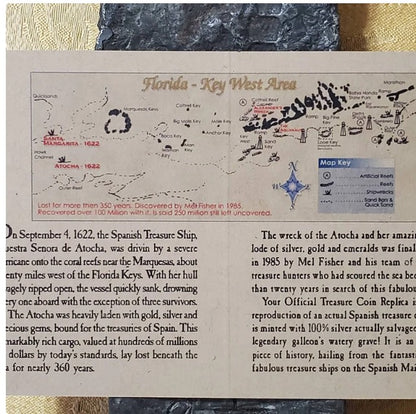 Florida - Key West Area
Quicksands
Marquesas Keys
Cottrell Key
Big Mullet Key
Mule Key
Archer Key
Boca Key
Man Key
SANTA
MARGARITA - 1622
Hawk
Channel
ATOCHA - 1622
Outer Reef
Marathon
Bahia Honda
State Park
Big Pine
Key
Ramp
Looe Key
Map Key
Artificial Reefs
Reefs
Shipwrecks
Sand Bars &
Quick Sand
N
Lost for more then 350 years. Discovered by Mel Fisher in 1985.
Recovered over 100 Milion with it, is said 250 milion still left uncovered.
On September 4, 1622, the Spanish Treasure Ship,
uestra Senora de Atocha, was driven by a severe
rricane onto the coral reefs near the Marquesas, about
enty miles west of the Florida Keys. With her hull
ugely ripped open, the vessel quickly sank, drowning
ery one aboard with the exception of three survivors.
The Atocha was heavily laden with gold, silver and
ecious gems, bound for the treasures of Spain. This
markably rich cargo, valued at hundreds of millions
dollars by today's standards, lay lost beneath the
a for nearly 360 years.
The wreck of the Atocha and her amazin
lode of silver, gold and emeralds was final
in 1985 by Mel Fisher and his team of
treasure hunters who had scoured the sea be
than twenty years in search of this fabulou
Your Official Treasure Coin Replica i
reproduction of an actual Spanish treasure c
is minted with 100% silver actually salvage
legendary galleon's watery grave! It is an
piece of history, hailing from the fantas
fabulous treasure ships on the Spanish Mai